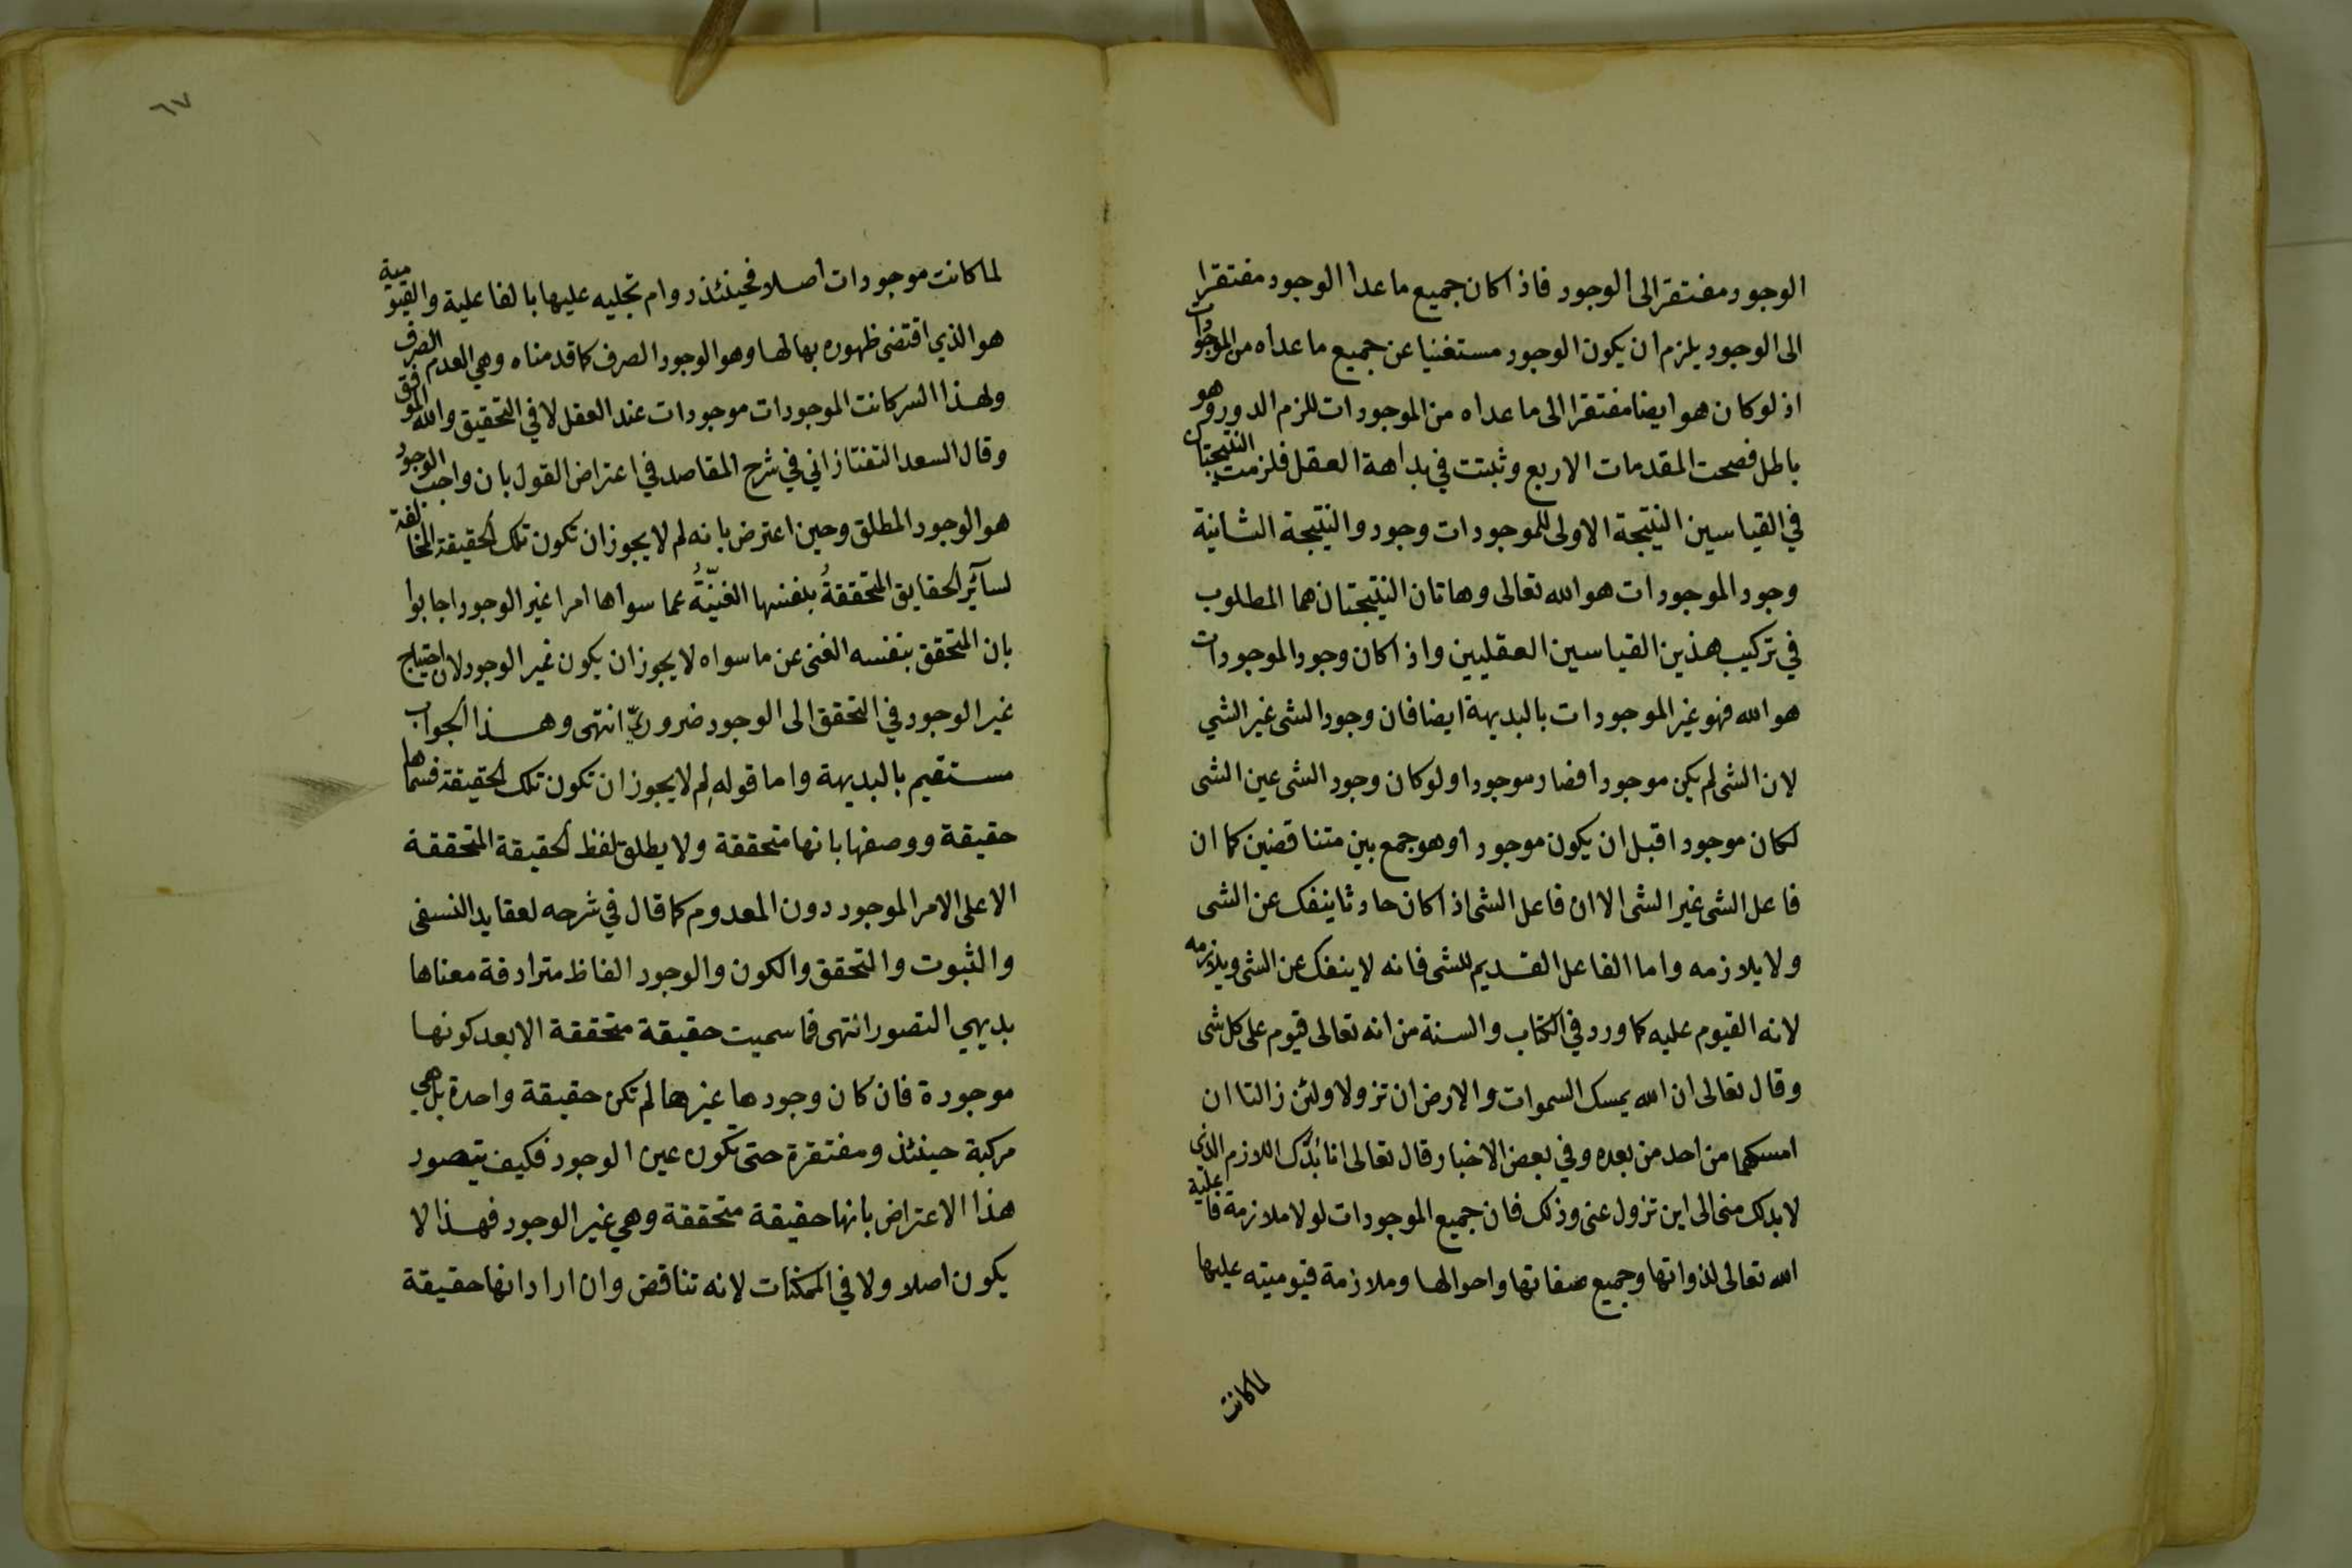 الوجود مفتقرا الى الوجود فاذا كان جميع ما عدا الوجود مفتقرا
الى الوجود يلزم ان يكون الوجود مستغنيا عن جميع ما عداه من الموجودات
اذ لو كان هو ايضا مفتقرا الى ما عداه من الموجودات للزم الدور وهو
باطل فصحت المقدمات الاربع وثبتت في بداهة العقل فلزمت النتيجتان
في القياسين النتيجة الاولى للموجودات وجود والنتيجة الثانية
وجود الموجودات هو الله تعالى وهاتان النتيجتان هما المطلوب
في تركيب هذين القياسين العقليين واذا كان وجود الموجودات
هو الله فهو غير الموجودات بالبديهة ايضا فان وجود الشى غير الشي
لان الشى لم يكن موجودا فصار موجودا ولو كان وجود الشى عين الشى
لكان موجودا قبل ان يكون موجودا وهو جمع بين متناقضين كما ان
فاعل الشى غير الشى الا ان فاعل الشى اذا كان حادثا ينفك عن الشى
ولا يلازمه واما الفاعل القديم للشى فانه لا ينفك عن الشى ويلازمه
لانه القيوم عليه كما ورد في الكتاب والسنة من انه تعالى قيوم على كل شى
وقال تعالى ان الله يمسك السموات والارض ان تزولا ولئن زالتا ان
امسكهما من احد من بعده وفي بعض الاخبار قال تعالى انا بُدُّك اللازم الذى
لا بدلك منى الى اين تزول عنى وذلك فان جميع الموجودات لولا ملازمة فاعلية
الله تعالى لذواتها وجميع صفاتها واحوالها وملازمة قيوميته عليها
لما كانت
٦٧
لما كانت موجودات اصلا فحينئذ دوام تجليه عليها بالفاعلية والقيومية
هو الذي اقتضى ظهوره بها لها وهو الوجود الصرف كما قدمناه وهي العدم الصرف
ولهذا السر كانت الموجودات موجودات عند العقل لا في التحقيق والله الموفق
وقال السعد التفتازاني في شرح المقاصد في اعتراض القول بان واجب الوجود
هو الوجود المطلق وحين اعترض بانه لم لا يجوز ان تكون تلك الحقيقة المخالفة
لسآئر الحقايق المتحققةُ بنفسها الغنيّةُ عما سواها امرا غير الوجود اجابوا
بان المتحقق بنفسه الغنى عن ما سواه لا يجوز ان يكون غير الوجود لان احتياج
غير الوجود في التحقق الى الوجود ضروريّ انتهى وهذا الجواب
مستقيم بالبديهة واما قوله لِم لا يجوز ان تكون تلك الحقيقة فسماها
حقيقة ووصفها بانها متحققة ولا يطلق لفظ الحقيقة المتحققة
الا على الامر الموجود دون المعدوم كما قال في شرحه لعقايد النسفى
والثبوت والتحقق والكون والوجود الفاظ مترادفة معناها
بديهي التصور انتهى فما سميت حقيقة متحققة الا بعد كونها
موجودة فان كان وجودها غيرها لم تكن حقيقة واحدة بل هي
مركبة حينئذ ومفتقرة حتى تكون عين الوجود فكيف يتصور
هذا الاعتراض بانها حقيقة متحققة وهي غير الوجود فهذا لا
يكون اصلا ولا في الممكنات لانه تناقض وان اراد انها حقيقة